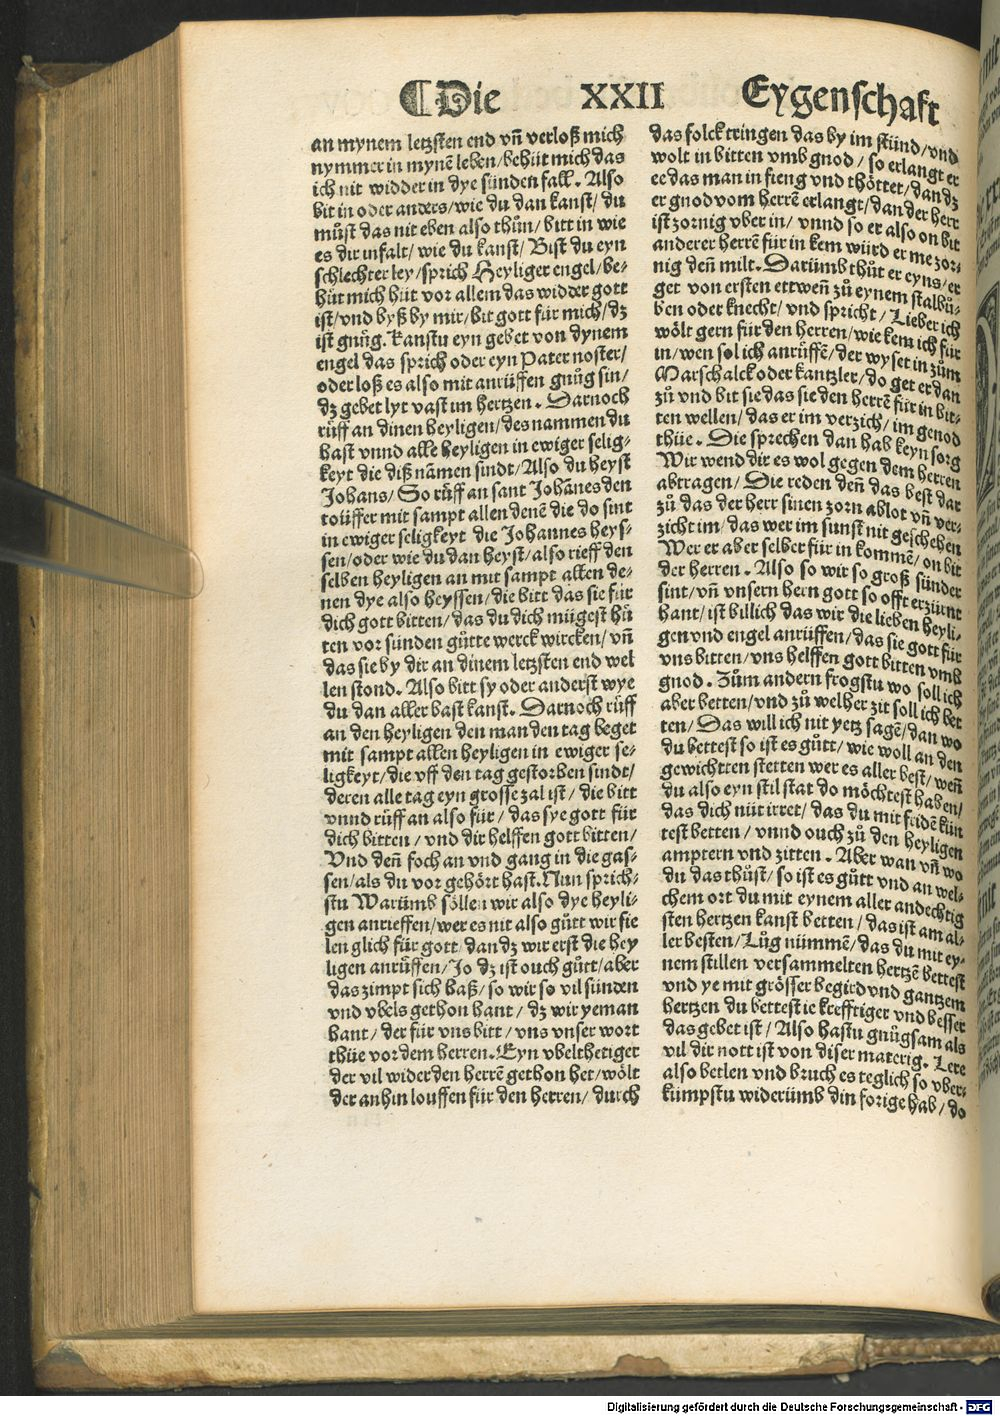 ¶Die XXII Eygenschafft
an mynem letzsten end vñ verloß mich
nymmer in mynẽ leben/behüt mich das
ich nit widder in dye sünden fall. Also
bit in oder anders/wie du dan kanst/du
můst das nit eben also thůn/bitt in wie
es dir infalt/wie du kanst/Bist du eyn
schlechter ley/sprich Heyliger engel/be-
hüt mich hüt vor allem das widder gott
ist/vnd byß by mir/bit gott für mich/dz
ist gnůg. Kanstu eyn gebet von dynem
engel das sprich oder eyn Pater noster/
oder loß es also mit anrüffen gnůg sin/
dz gebet lyt vast im hertzen. Darnoch
rüff an dinen heyligen/des nammen du
hast vnnd alle heyligen in ewiger selig-
keyt die diß nãmen sindt/Also du heyst
Johans/So rüff an sant Johãnes den
toüffer mit sampt allen denẽ die do sint
in ewiger seligkeyt die Johannes heys-
sen/oder wie du dan heyst/also rieff den
selben heyligen an mit sampt allen de-
nen dye also heyssen/die bitt das sie für
dich gott bitten/das du dich mügest hü
ten vor sünden gůtte werck wircken/vñ
das sie by dir an dinem letzsten end wel
len stond. Also bitt sy oder anderst wye
du dan aller bast kanst. Darnoch rüff
an den heyligen den man den tag beget
mit sampt allen heyligen in ewiger se-
ligkeyt/die vff den tag gestorben sindt/
deren alle tag eyn grosse zal ist/die bitt
vnnd rüff an also für/das sye gott für
dich bitten/vnd dir helffen gott bitten/
Vnd deñ foch an vnd gang in die gas-
sen/als du vor gehört hast. Nun sprich-
stu Warumb söllen wir also dye heyli-
gen anrieffen/wer es nit also gůtt wir fie
len glich für gott/dan dz wir erst die hey
ligen anrüffen/Jo dz ist ouch gůtt/aber
das zimpt sich baß/so wir so vil sünden
vnd vbels gethon hant/dz wir yeman
hant/der für vns bitt/vns vnser wort
thüe vor dem herren. Eyn vbelthetiger
der vil wider den herrẽ gethon het/wölt
der anhin louffen für den herren/durch
das folck tringen das by im stünd/vnd
wolt in bitten vmb gnod/so erlangt er
ee das man in fieng vnd thöttet/dan dz
er gnod vom herrẽ erlangt/dan der herr
ist zornig vber in/vnnd so er also on bit
anderer herrẽ für in kem würd er me zor-
nig deñ milt. Darümb thůt er eyns/er
get von ersten ettweñ zů eynem stalbů-
ben oder knecht/vnd spricht/Lieber ich
wölt gern für den herren/wie kem ich für
in/wen sol ich anrüffẽ/der wyset in zům
Marschalck oder kantzler/do get er dan
zů vnd bit sie das sie den herrẽ für in bit-
ten wellen/das er im verzich/im genod
thüe. Die sprechen dan hab keyn sorg
Wir wend dir es wol gegen dem herren
abtragen/Die reden deñ das best dar
zů das der herr sinen zorn ablot vñ ver-
zicht im/das wer im sunst nit geschehen
Wer er aber selber für in kommẽ/on bit
der herren. Also so wir so groß sünder
sint/vñ vnsern hern gott so offt erzürnt
hant/ist billich das wir die lieben heyli-
gen vnd engel anrüffen/das sie gott für
vns bitten/vns helffen gott bitten vmb
gnod. Zům andern frogstu wo soll ich
aber betten/vnd zů welher zit soll ich bet
ten/Das will ich nit yetz sagẽ/dan wo
du bettest so ist es gůtt/wie woll an den
gewichtten stetten wer es aller best/weñ
du also eyn stil stat do möchtest haben/
das dich nüt irret/das du mit fridẽ kün
test betten/vnnd ouch zů den heyligen
amptern vnd zitten. Aber wan vñ wo
du das thůst/so ist es gůtt vnd an wel-
chem ort du mit eynem aller andechtig
sten hertzen kanst betten/das ist am al-
ler besten/Lůg nümmẽ/das du mit ey-
nem stillen versammelten hertzẽ bettest
vnd ye mit grösser begird vnd gantzem
hertzen du bettest ie krefftiger vnd besser
das gebet ist/Also hastu gnůgsam als
vil dir nott ist von diser materig. Lere
also betlen vnd bruch es teglich so vber-
kümpstu widerümb din forige hab/do
Digitalisierung gefördert durch die Deutsche Forschungsgemeinschaft - DFG